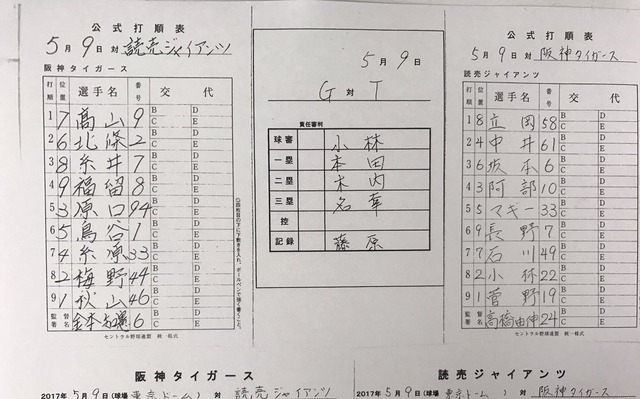 公式打順表
5月9日対 読売ジャイアンツ
阪神タイガース
打順 位置 選手名 番号 交代
1 7 高山 9 B D C E
2 6 北條 2 B D C E
3 8 糸井 7 B D C E
4 9 福留 8 B D C E
5 3 原口 94 B D C E
6 5 鳥谷 1 B D C E
7 4 糸原 33 B D C E
8 2 梅野 44 B D C E
9 1 秋山 46 B D C E
監督署名 金本知憲 6
セントラル野球連盟 統一様式
5月9日
G対T
責任審判
球審 小林
一塁 本田
二塁 木内
三塁 名幸
控
記録 藤原
公式打順表
5月9日対 阪神タイガース
読売ジャイアンツ
打順 位置 選手名 番号 交代
1 8 立岡 58 B D C E
2 4 中井 61 B D C E
3 6 坂本 6 B D C E
4 3 阿部 10 B D C E
5 5 マギー 33 B D C E
6 9 長野 7 B D C E
7 7 石川 49 B D C E
8 2 小林 22 B D C E
9 1 菅野 19 B D C E
監督署名 高橋由伸 24
セントラル野球連盟 統一様式
阪神タイガース
2017年5月9日(球場 東京ドーム)対 読売ジャイアンツ
読売ジャイアンツ
2017年5月9日(球場 東京ドーム)対 阪神タイガース